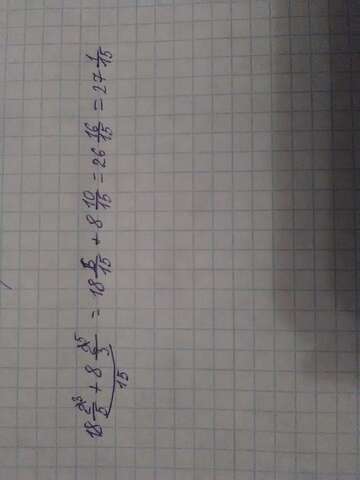 18 2/5 + 8 2/3 = 18 6/15 + 8 10/15 = 26 16/15 = 27 1/15
15